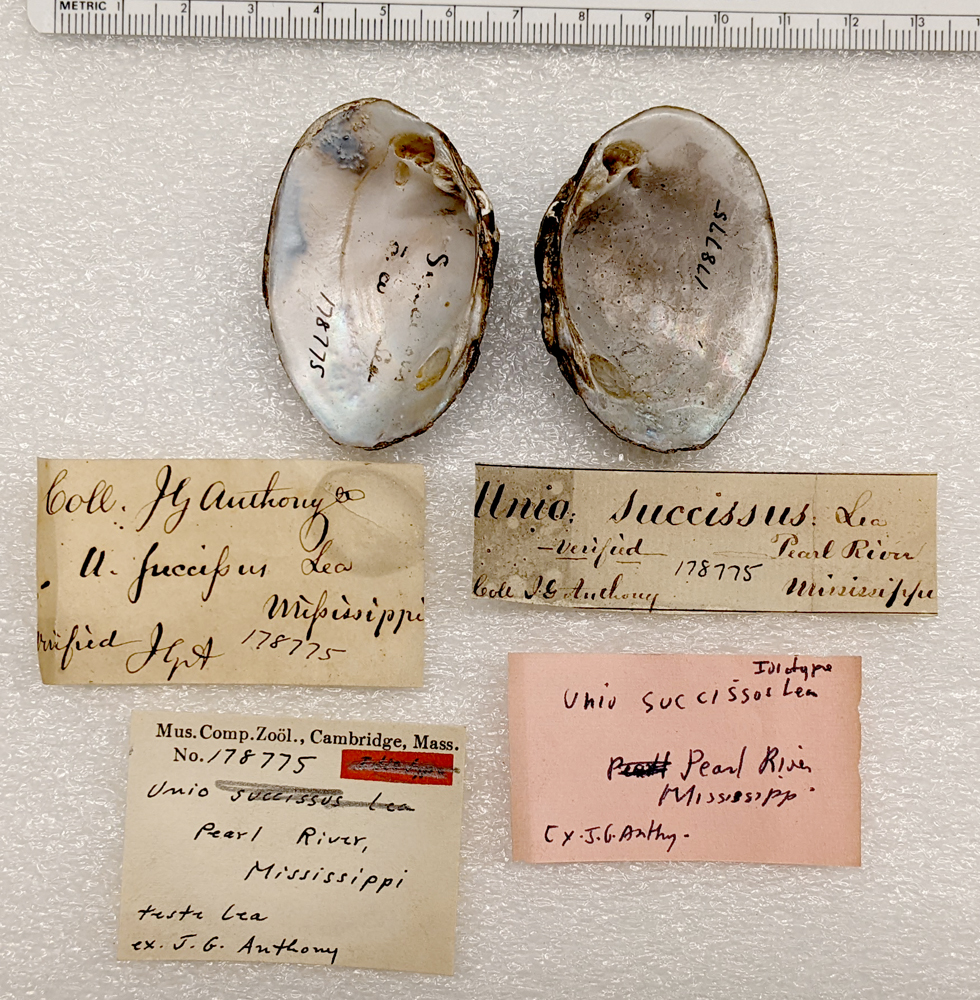 METRIC 1 2 3 4 5 6 7 8 9 10 11 12 13
178775
178775
Coll. J G Anthony
U. Succissus Lea
Mississippi
verified JGA 178775
Unio. Succissus. Lea
verified Pearl River
178775
Coll J. G Anthony Mississippi
Mus.Comp.Zoöl., Cambridge, Mass.
No. 178775
Unio succissus Lea
Pearl River,
Mississippi
teste Lea
ex. J. G. Anthony
Idiotype
Unio succissus Lea
Pearl River
Mississipp
Ex. J. G. Anthy.